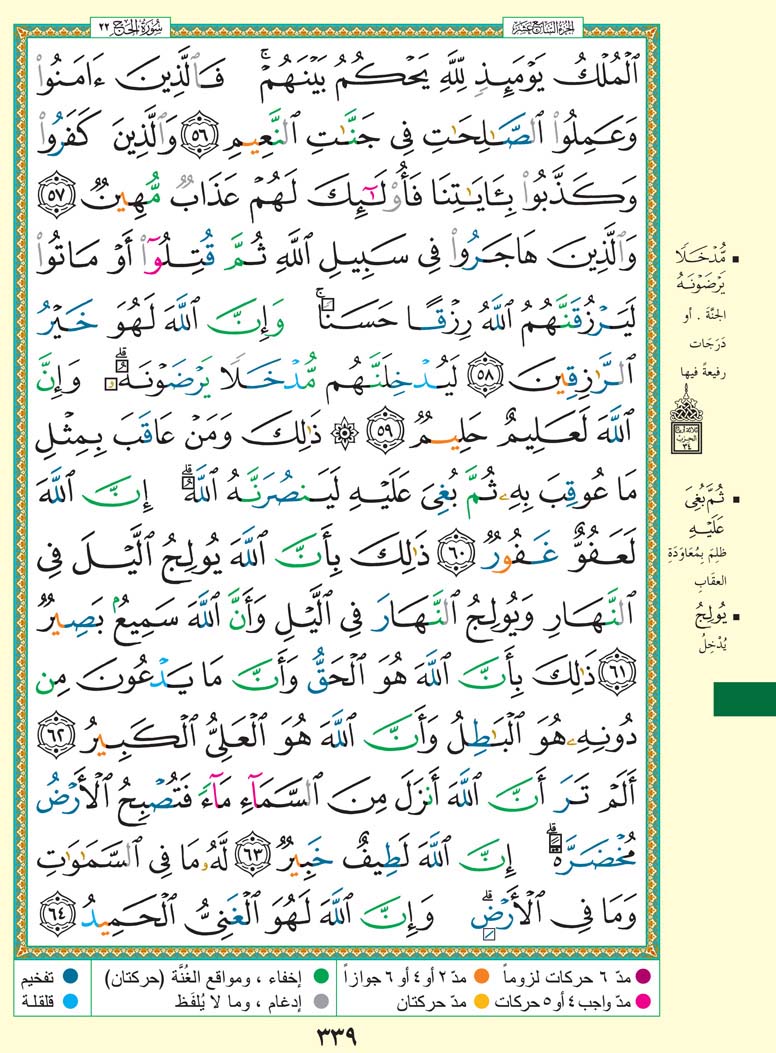 سورة الحج ٢٢
الجزء السابع عشر
ٱلْمُلْكُ يَوْمَئِذٍ لِّلَّهِ يَحْكُمُ بَيْنَهُمْ ۚ فَٱلَّذِينَ ءَامَنُوا۟
وَعَمِلُوا۟ ٱلصَّٰلِحَٰتِ فِى جَنَّٰتِ ٱلنَّعِيمِ ﴿٥٦﴾ وَٱلَّذِينَ كَفَرُوا۟
وَكَذَّبُوا۟ بِـَٔايَٰتِنَا فَأُو۟لَٰٓئِكَ لَهُمْ عَذَابٌ مُّهِينٌ ﴿٥٧﴾
وَٱلَّذِينَ هَاجَرُوا۟ فِى سَبِيلِ ٱللَّهِ ثُمَّ قُتِلُوٓا۟ أَوْ مَاتُوا۟
لَيَرْزُقَنَّهُمُ ٱللَّهُ رِزْقًا حَسَنًا ۚ وَإِنَّ ٱللَّهَ لَهُوَ خَيْرُ
ٱلرَّٰزِقِينَ ﴿٥٨﴾ لَيُدْخِلَنَّهُم مُّدْخَلًا يَرْضَوْنَهُۥ ۗ وَإِنَّ
ٱللَّهَ لَعَلِيمٌ حَلِيمٌ ﴿٥٩﴾ ۞ ذَٰلِكَ وَمَنْ عَاقَبَ بِمِثْلِ
مَا عُوقِبَ بِهِۦ ثُمَّ بُغِىَ عَلَيْهِ لَيَنصُرَنَّهُ ٱللَّهُ ۗ إِنَّ ٱللَّهَ
لَعَفُوٌّ غَفُورٌ ﴿٦٠﴾ ذَٰلِكَ بِأَنَّ ٱللَّهَ يُولِجُ ٱلَّيْلَ فِى
ٱلنَّهَارِ وَيُولِجُ ٱلنَّهَارَ فِى ٱلَّيْلِ وَأَنَّ ٱللَّهَ سَمِيعٌۢ بَصِيرٌ
﴿٦١﴾ ذَٰلِكَ بِأَنَّ ٱللَّهَ هُوَ ٱلْحَقُّ وَأَنَّ مَا يَدْعُونَ مِن
دُونِهِۦ هُوَ ٱلْبَٰطِلُ وَأَنَّ ٱللَّهَ هُوَ ٱلْعَلِىُّ ٱلْكَبِيرُ ﴿٦٢﴾
أَلَمْ تَرَ أَنَّ ٱللَّهَ أَنزَلَ مِنَ ٱلسَّمَآءِ مَآءً فَتُصْبِحُ ٱلْأَرْضُ
مُخْضَرَّةً ۗ إِنَّ ٱللَّهَ لَطِيفٌ خَبِيرٌ ﴿٦٣﴾ لَّهُۥ مَا فِى ٱلسَّمَٰوَٰتِ
وَمَا فِى ٱلْأَرْضِ ۗ وَإِنَّ ٱللَّهَ لَهُوَ ٱلْغَنِىُّ ٱلْحَمِيدُ ﴿٦٤﴾
▪ مُّدْخَلًا
يَرْضَوْنَهُ
الجنَّةَ . أو
دَرَجَات
رفيعةً فيها
ثلاثة أرباع
الحزب
٣٤
▪ ثُمَّ بُغِىَ
عَلَيْهِ
ظلِمَ بِمُعاوَدَةِ
العقَابِ
▪ يُولِجُ
يُدْخِلُ
● مدّ ٦ حركات لزوماً ● مدّ ٢ أو ٤ أو ٦ جوازاً ● إخفاء ، ومواقع الغُنَّة (حركتان) ● تفخيم
● مدّ واجب ٤ أو ٥ حركات ● مدّ حركتان ● إدغام ، وما لا يُلفَظ ● قلقلة
٣٣٩